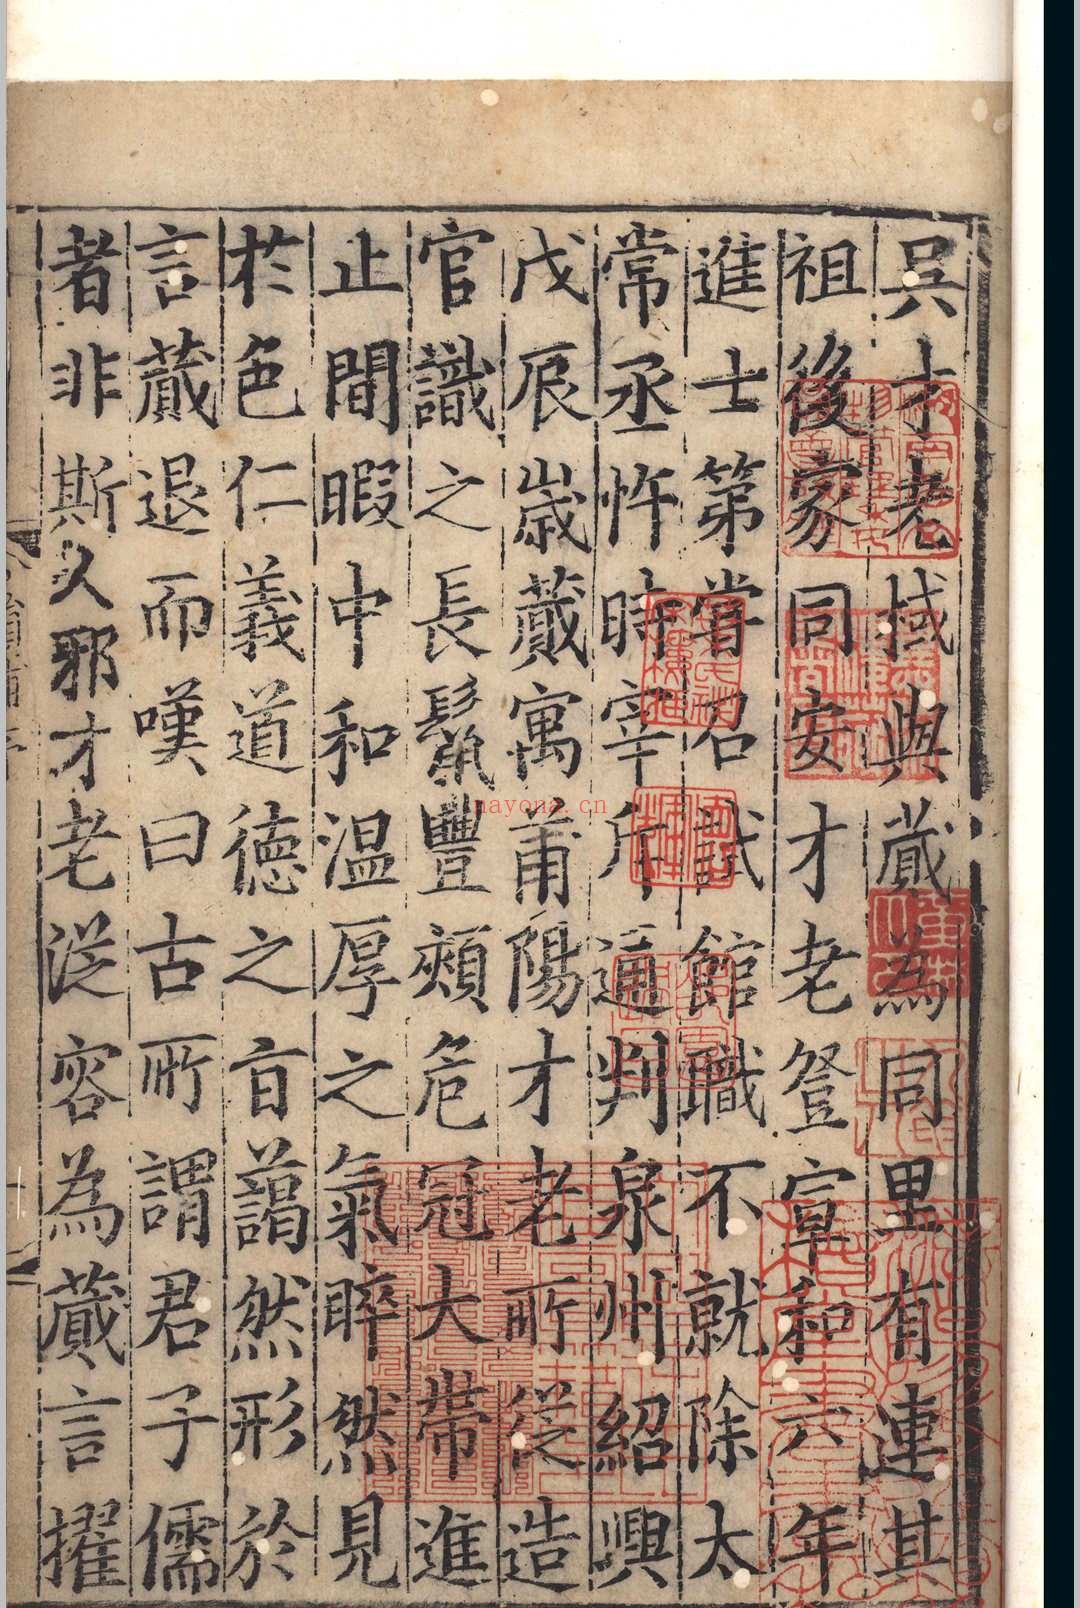 吳才老棫與蕆為同里有連其
祖後家同安才老登宣和六年
進士第嘗召試館職不就除太
常丞忤時宰斥通判泉州紹興
戊辰歲蕆寓莆陽才老所從造
官識之長鬚豐頰危冠大帶進
止閒暇中和温厚之氣睟然見
於色仁義道德之言藹然形於
言蕆退而嘆曰古所謂君子儒
者非斯人邪才老從容為蕆言擢
nayona.cn